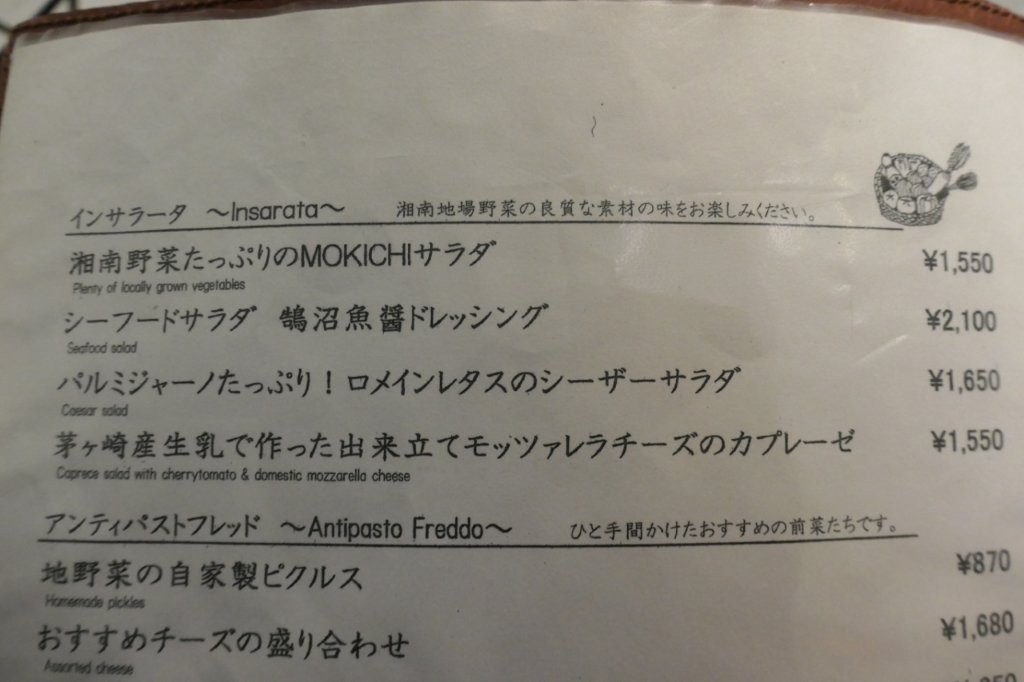 インサラータ ～Insarata～ 湘南地場野菜の良質な素材の味をお楽しみください。
湘南野菜たっぷりのMOKICHIサラダ ¥1,550
Plenty of locally grown vegetables
シーフードサラダ 鵠沼魚醤ドレッシング ¥2,100
Seafood salad
パルミジャーノたっぷり！ロメインレタスのシーザーサラダ ¥1,650
Caesar salad
茅ヶ崎産生乳で作った出来立てモッツァレラチーズのカプレーゼ ¥1,550
Caprece salad with cherrytomato & domestic mozzarella cheese
アンティパストフレッド ～Antipasto Freddo～ ひと手間かけたおすすめの前菜たちです。
地野菜の自家製ピクルス ¥870
Homemade pickles
おすすめチーズの盛り合わせ ¥1,680
Assorted cheese